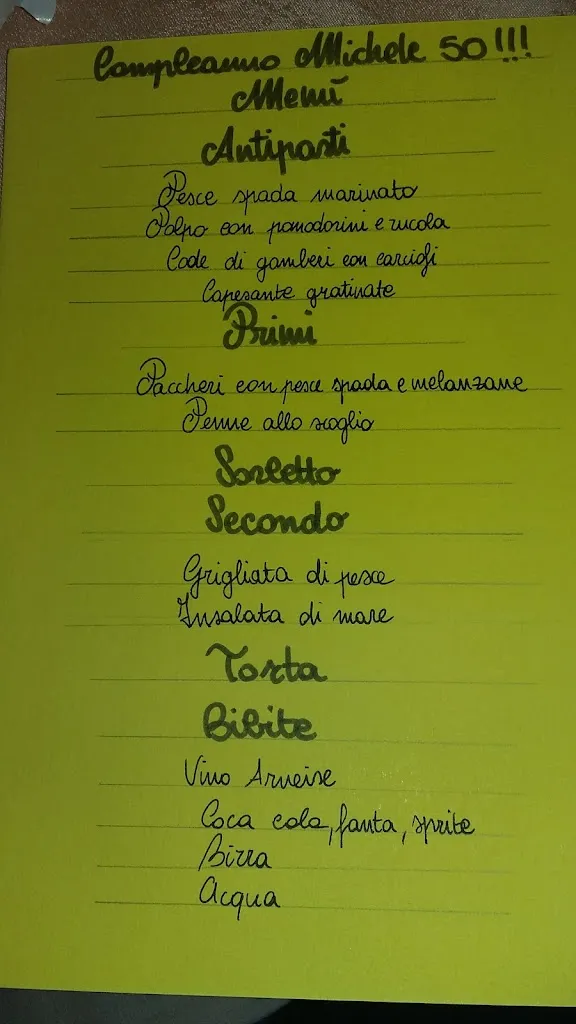 Compleanno Michele 50!!!
Menù
Antipasti
Pesce spada marinato
Polpo con pomodorini e rucola
Code di gamberi con carciofi
Capesante gratinate
Primi
Paccheri con pesce spada e melanzane
Penne allo scoglio
Sorbetto
Secondo
Grigliata di pesce
Insalata di mare
Torta
Bibite
Vino Arneise
Coca cola, fanta, sprite
Birra
Acqua